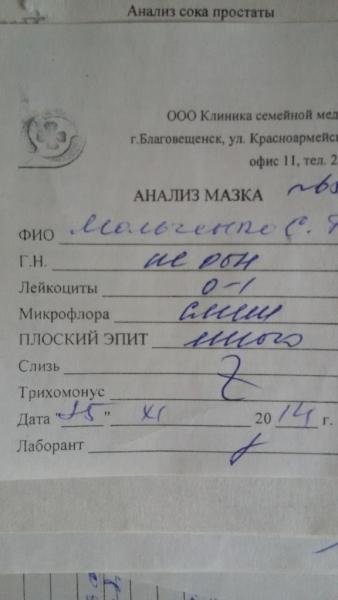 Анализ сока простаты
ООО Клиника семейной мед
г.Благовещенск, ул. Красноармейс
офис 11, тел. 2
АНАЛИЗ МАЗКА
ФИО
Г.Н. не обн
Лейкоциты 0-1
Микрофлора смеш
ПЛОСКИЙ ЭПИТ много
Слизь
Трихомонус
Дата "25" XI 2014 г.
Лаборант